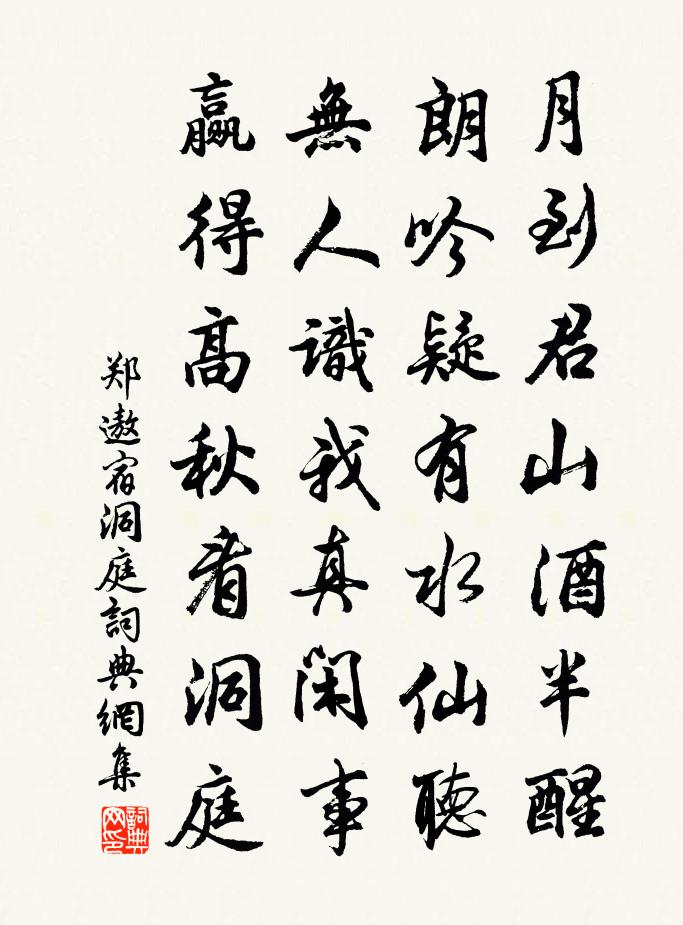 月到君山酒半醒
朗吟疑有水仙聽
無人識我真閑事
贏得高秋看洞庭
郑遨宿洞庭詞典網集
詞典网印